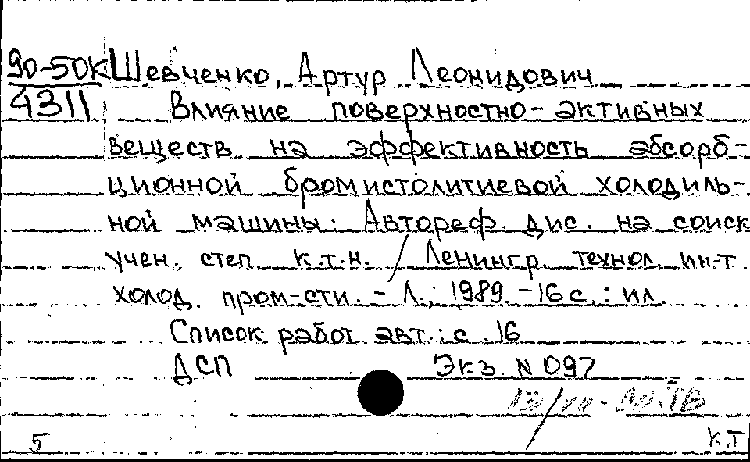 90-50К Шевченко, Артур Леонидович
4311 Влияние поверхностно-активных
веществ на эффективность абсорб-
ционной бромистолитиевой холодиль-
ной машины: Автореф. дис. на соиск
учен. степ к.т.н. / Ленингр. технол. ин-т
холод. пром-сти. - Л., 1989 - 16 с. : ил.
Список работ авт.: с. 16
ДСП Экз. N 097
5 К.Т